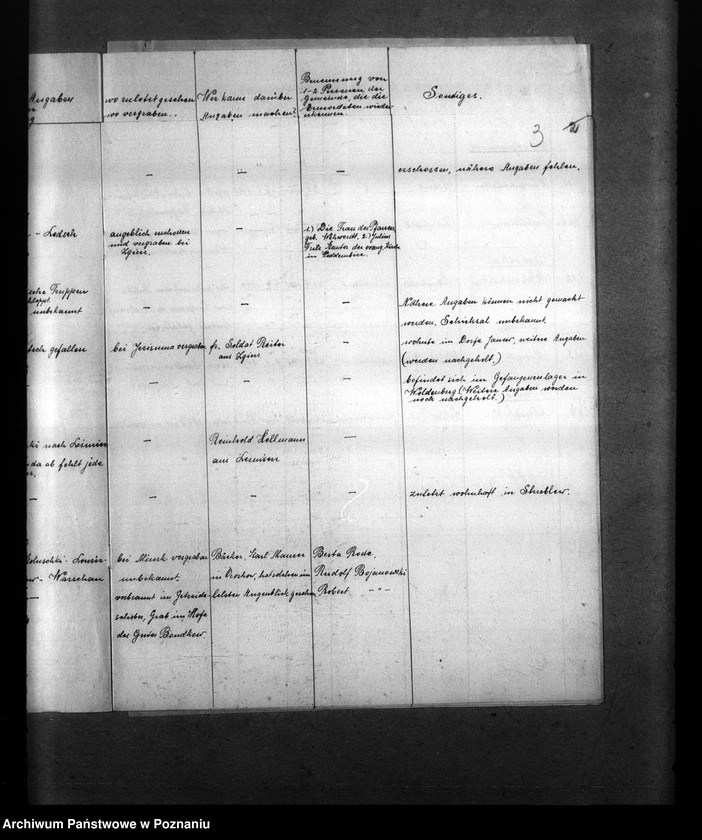 Angaben
wo zuletzt gesehen
wo vergraben..
Wer kann darüber
Angaben machen?
Benennung von
1-2 Personen der
Gemeinde, die die
Ermordeten wieder
erkennen.
Sonstiges.
3
– – – erschossen, nähere Angaben fehlen.
- Lodsch
angeblich erschossen
und vergraben bei
Zgierz.
–
1) Die Frau des
geb. 2) Julius
Kantor der evang. Kirche
in Poddembice.
Truppen
unbekannt
– – –
Nähere Angaben können nicht gemacht
werden. Schicksal unbekannt.
gefallen
bei Jesionna vergraben
fr. Soldat Reiter
aus Zgierz
–
wohnte im Dorfe Janow, weitere Angaben
(werden nachgeholt.)
– – –
befindet sich im Gefangenenlager in
Woldenberg (Weitere Angaben werden
noch nachgeholt.)
nach Lesmierz
da ab fehlt jede
–
Reinhold Hellmann
aus Lesmierz
–
– – – –
zuletzt wohnhaft in
- Warschau
–
bei Minsk vergraben
unbekannt.
verbrannt im Getreide
schober, Grab im Hofe
des Gutes Bondkow.
Bäcker, Karl Maurer
in Ozorkow, hat sie im
letzten Augenblick gesehen.
Berta Rode,
Rudolf Bojanowski
Robert –"–
Archiwum Państwowe w Poznaniu